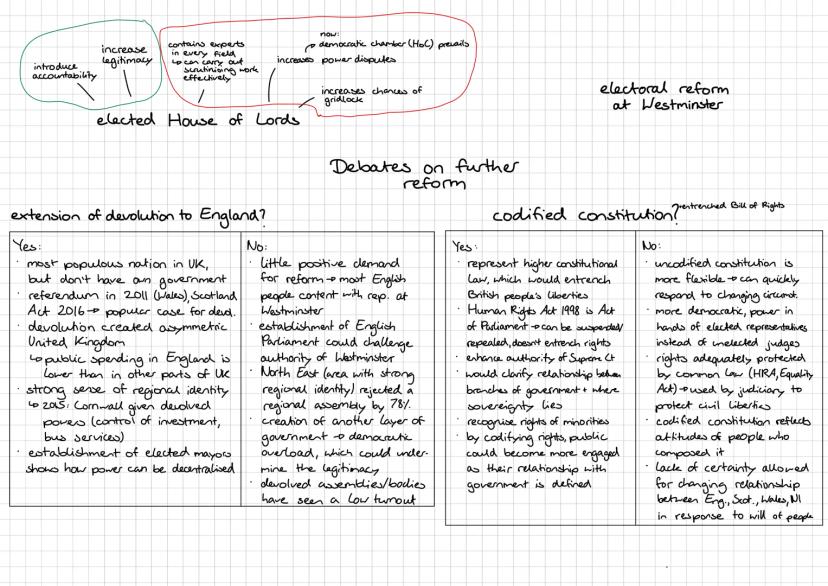 increase
legitimacy
introduce
accountability
contains experts
in every field
↳ can carry out
scrutinising work
effectively
now:
democratic chamber (HoC) prevails
increases power disputes
increases chances of
gridlock
elected House of Lords
electoral reform
at Westminster
Debates on further
reform
extension of devolution to England?
Yes:
· most populous nation in UK,
but don't have own government
· referendum in 2011 (Wales), Scotland
Act 2016 → popular case for devol.
· devolution created asymmetric
United Kingdom
↳ public spending in England is
lower than in other parts of UK
· strong sense of regional identity
↳ 2015: Cornwall given devolved
powers (control of investment,
bus services)
· establishment of elected mayors
shows how power can be decentralised
No:
· little positive demand
for reform → most English
people content with rep. at
Westminster
· establishment of English
Parliament could challenge
authority of Westminster
· North East (area with strong
regional identity) rejected a
regional assembly by 78%
· creation of another layer of
government → democratic
overload, which could under-
mine the legitimacy
· devolved assemblies/bodies
have seen a low turnout
codified constitution?
→ entrenched Bill of Rights
Yes:
· represent higher constitutional
law, which would entrench
British people's liberties
· Human Rights Act 1998 is Act
of Parliament → can be suspended/
repealed, doesn't entrench rights
· enhance authority of Supreme Ct
· would clarify relationship between
branches of government + where
sovereignty lies
· recognise rights of minorities
· by codifying rights, public
could become more engaged
as their relationship with
government is defined
No:
· uncodified constitution is
more flexible → can quickly
respond to changing circumst.
· more democratic, power in
hands of elected representatives
instead of unelected judges
· rights adequately protected
by common law (HRA, Equality
Act) → used by judiciary to
protect civil liberties
· codified constitution reflects
attitudes of people who
composed it
· lack of certainty allowed
for changing relationship
between Eng., Scot., Wales, NI
in response to will of people